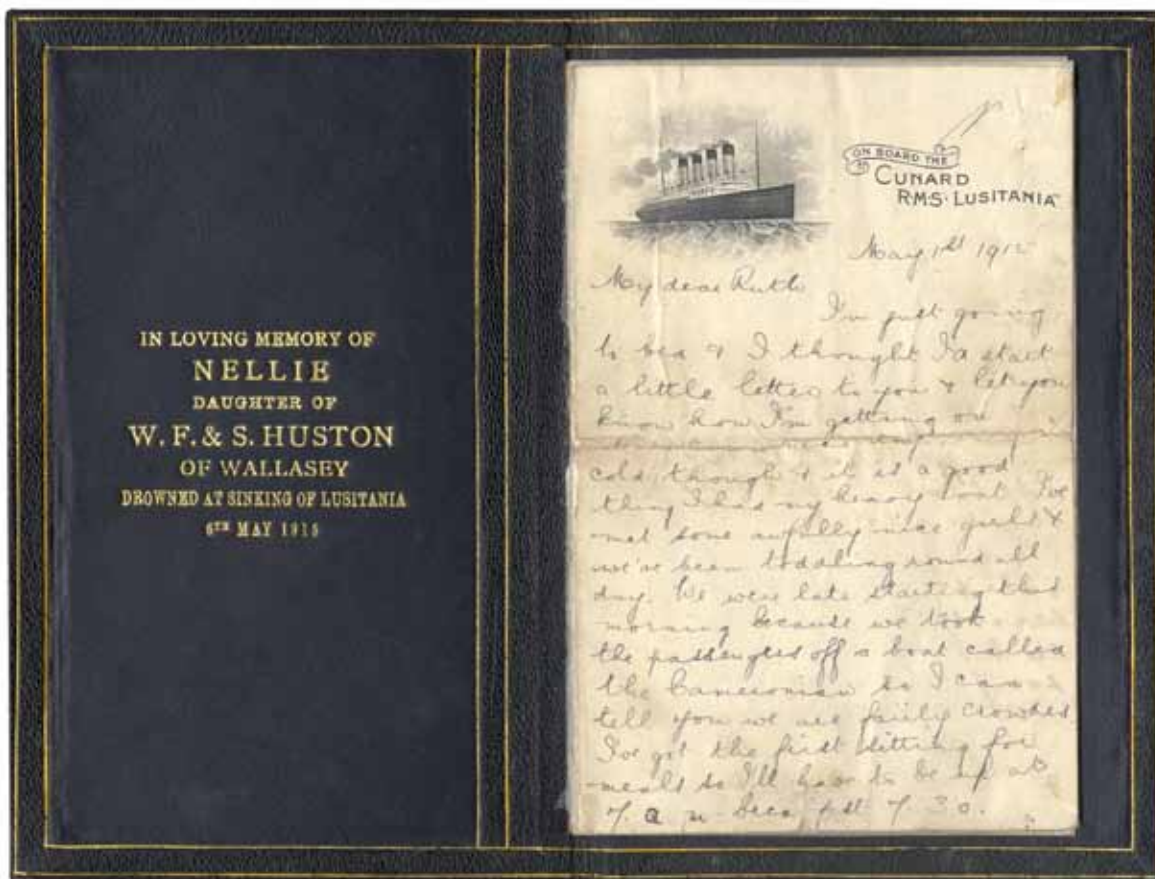 IN LOVING MEMORY OF
NELLIE
DAUGHTER OF
W. F. & S. HUSTON
OF WALLASEY
DROWNED AT SINKING OF LUSITANIA
6TH MAY 1915
ON BOARD THE
CUNARD
R.M.S. LUSITANIA
May 1st 1915
My dear Ruth
I'm just going
to bed & I thought I'd start
a little letter to you & let you
know how I'm getting on
cold though & it is a good
thing I had my heavy coat. I've
met some awfully nice girls &
we've been toddling round all
day. We were late starting this
morning because we took
the passengers off a boat called
the Cameronian so I can
tell you we are fairly crowded
I've got the first sitting for
meals so I'll have to be up at
7. a m 7.30.